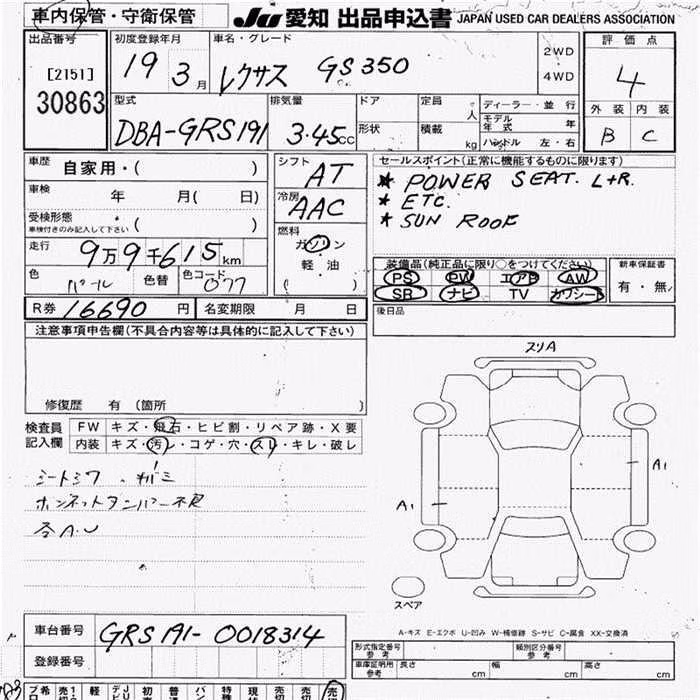 車内保管・守衛保管
JU 愛知 出品申込書 JAPAN USED CAR DEALERS ASSOCIATION
出品番号
[2151]
30863
初度登録年月
19 3月
車名・グレード
レクサス GS350
2WD
4WD
評価点
4
外装 内装
B C
型式
DBA-GRS191
排気量
3.45cc
ドア
形状
定員 人
積載 kg
ディーラー・並行
モデル年式 年
ハンドル 左・右
車歴 自家用・( )
車検 年 月( 日)
受検形態
車検付きのみ記入して下さい ( )
走行 9万9千615km
色 パール 色替 色コード 077
シフト AT
冷房 AAC
燃料
ガソリン
軽・油
( )
セールスポイント(正常に機能するものに限ります)
* POWER SEAT. L+R.
* ETC.
* SUN ROOF
装備品(純正品に限り○をつけてください)
PS PW エアB AW
SR ナビ TV カワシート
新車保証書
有・無
後日品
R券 16690円 名変期限 月 日
注意事項申告欄(不具合内容等は具体的に記入して下さい)
修復歴 有 (箇所
検査員記入欄
FW キズ・飛石・ヒビ割・リペア跡・X要
内装 キズ・汚レ・コゲ・穴・スレ・キレ・破レ
シートシワ
ボンネットダンパー不良
各A.U
スリA
A1
A1
スペア
A-キズ E-エクボ U-凹み W-補修跡 S-サビ C-腐食 XX-交換済
車台番号 GRS191-0018314
登録番号
形式指定番号 参考
類別区分番号 参考
車庫証明用 参考 長さ cm 幅 cm 高さ cm